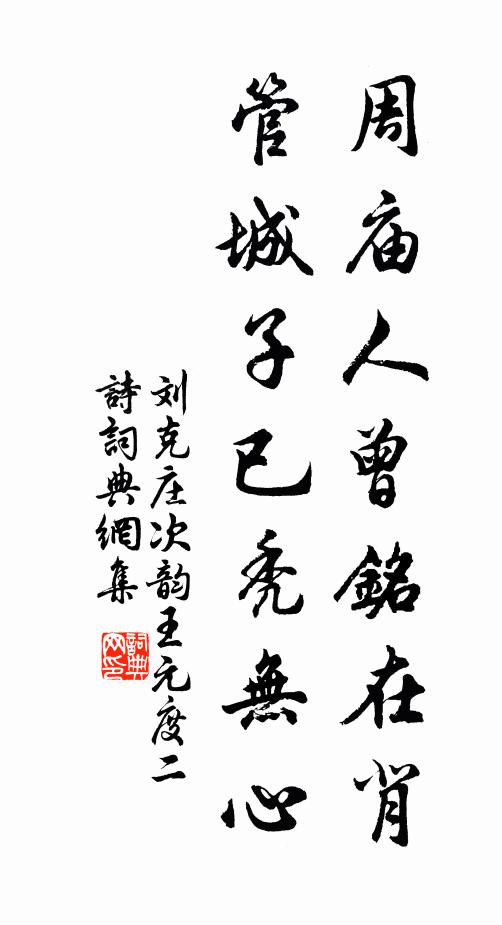 周庙人曾銘在背
管城子已秃無心
刘克庄次韵王元度二
詩詞典網集
詞典網印